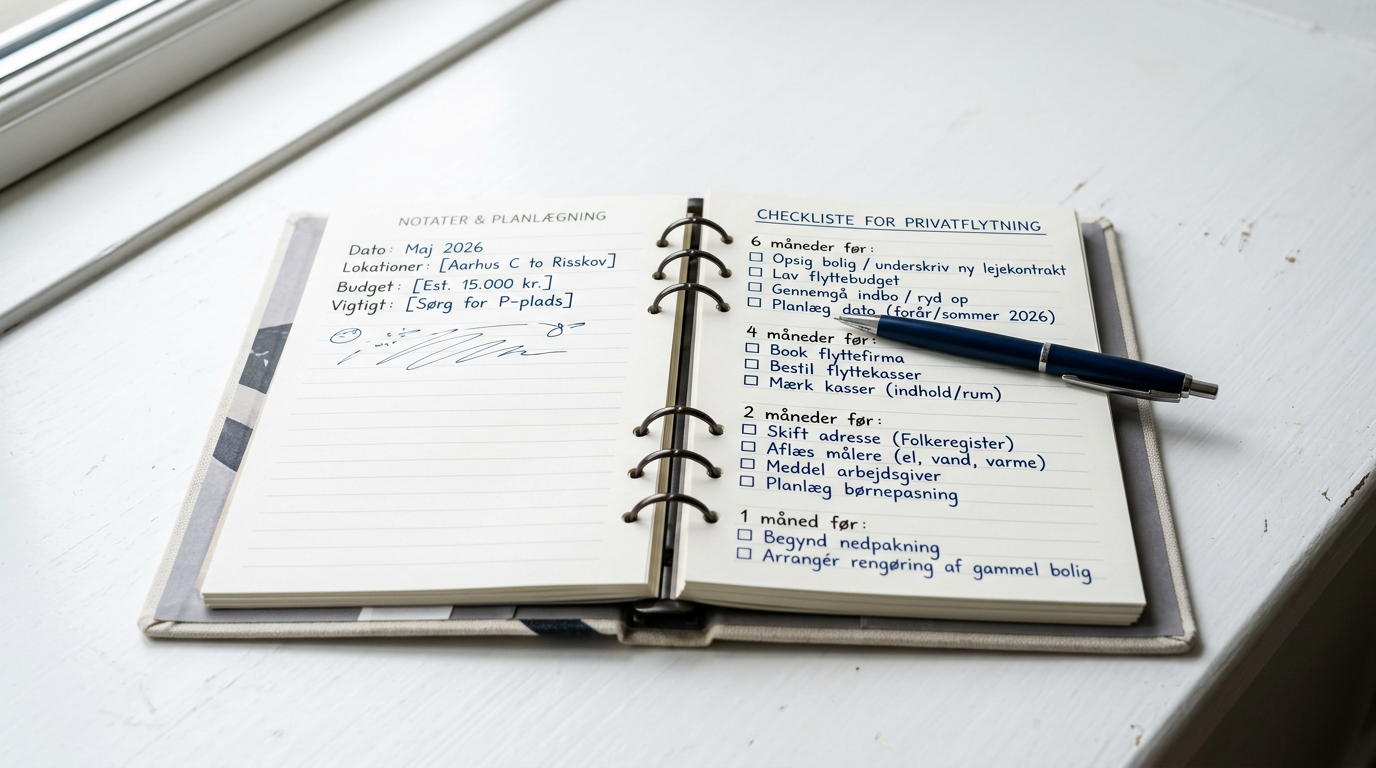 NOTATER & PLANLÆGNING
Dato: Maj 2026
Lokationer: [Aarhus C to Risskov]
Budget: [Est. 15.000 kr.]
Vigtigt: [Sørg for P-plads]
CHECKLISTE FOR PRIVATFLYTNING
6 måneder før:
☐ Opsig bolig / underskriv ny lejekontrakt
☐ Lav flyttebudget
☐ Gennemgå indbo / ryd op
☐ Planlæg dato (forår/sommer 2026)
4 måneder før:
☐ Book flyttefirma
☐ Bestil flyttekasser
☐ Mærk kasser (indhold/rum)
2 måneder før:
☐ Skift adresse (Folkeregister)
☐ Aflæs målere (el, vand, varme)
☐ Meddel arbejdsgiver
☐ Planlæg børnepasning
1 måned før:
☐ Begynd nedpakning
☐ Arrangér rengøring af gammel bolig